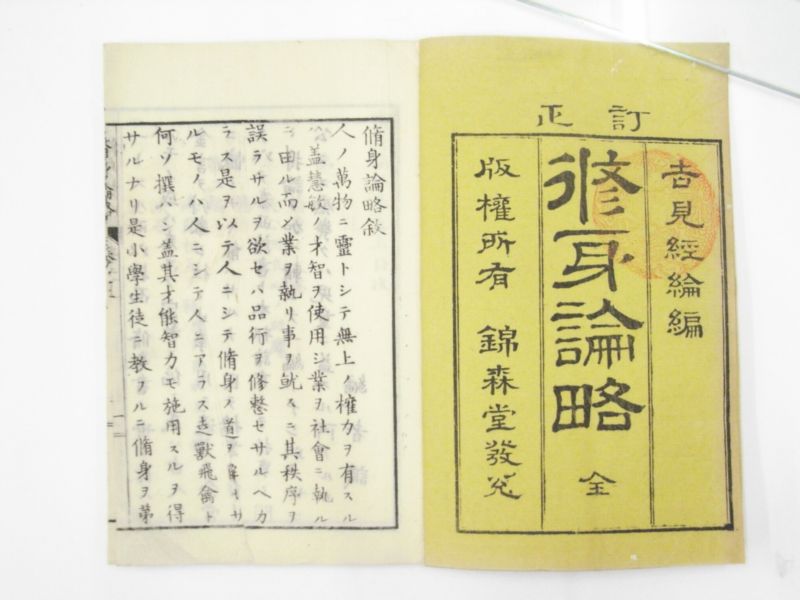 訂正
吉見經綸編
修身論略 全
版權所有 錦森堂發兌
脩身論略敘
人ノ萬物ニ靈トシテ無上ノ權力ヲ有スル
蓋慧敏ノ才智ヲ使用シ業ヲ社會ニ執ル
ニ由ル而メ業ヲ執リ事ヲ就スニ其秩序ヲ
誤ラサルヲ欲セハ品行ヲ修整セサルヘカ
ラス是ヲ以テ人ニシテ脩身ノ道ヲ
ルモノハ人ニシテ人ニアラス走獸飛禽ト
何ソ撰ハン蓋其才能智力モ施用スルヲ得
サルナリ是小學生徒ニ教フルニ脩身ヲ第